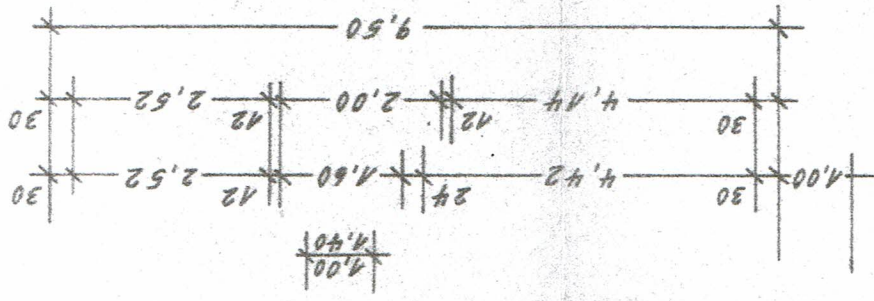 1,00
1,40
1,00 30 4,42 24 1,60 12 2,52 30
30 4,14 12 2,00 12 2,52 30
9,50